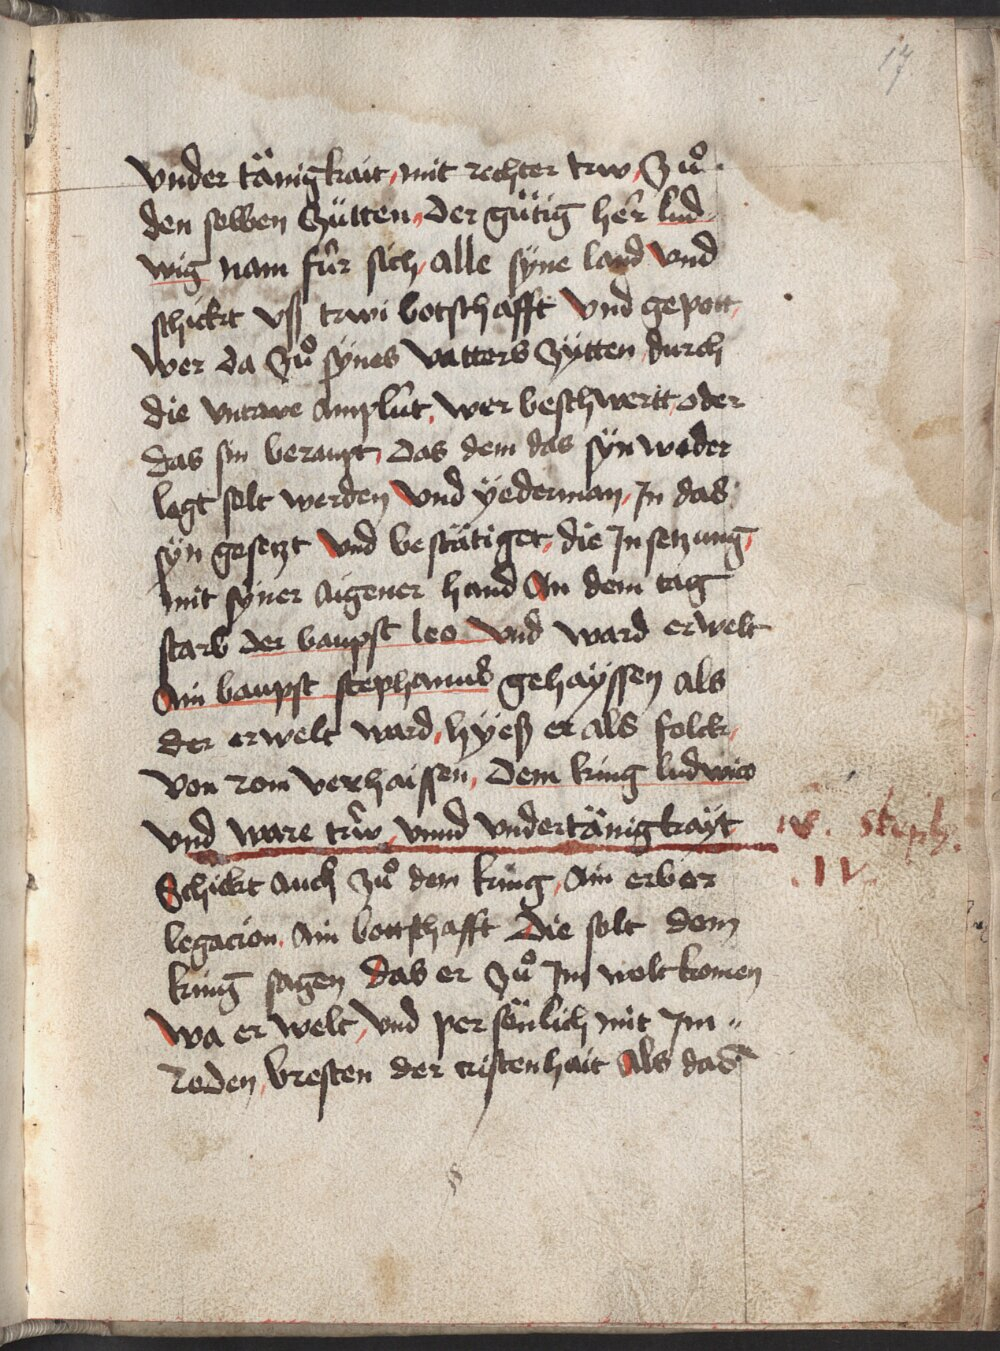 17
vnder tänigkait, mit rechter trw, zuͦ
den selben Zÿtten, Der gütig her lud-
wig nam für sich, alle syne land vnd
schickt vss trwi botschafft vnd gepott,
wer da zuͦ synes vatters zÿtten durch
die vntrwe amplüt, wer beschwertt, oder
das sin beraupt, Das dem das syn wider
legt solt werden vnd yederman, In das
syn gesetzt vnd bestätiget, die Insetzung,
mit syner aigener hand An dem tag
starb der baupst leo vnd ward erwelt
Ain baupst stephanus gehayssen als
der erwelt ward, hyeß er als folck,
von rom verhaissen, Dem king ludwico
vnd ware trüw vnnd vndertänigkayt
Schickt auch zuͦ dem king, Ain erber
legacion, Ain bottschafft Die solt dem
king sagen das er zuͦ Im wolt komen
wa er welt, vnd persönlich mit Im
reden, bresten der cristenhait Als das
Steph.
IV